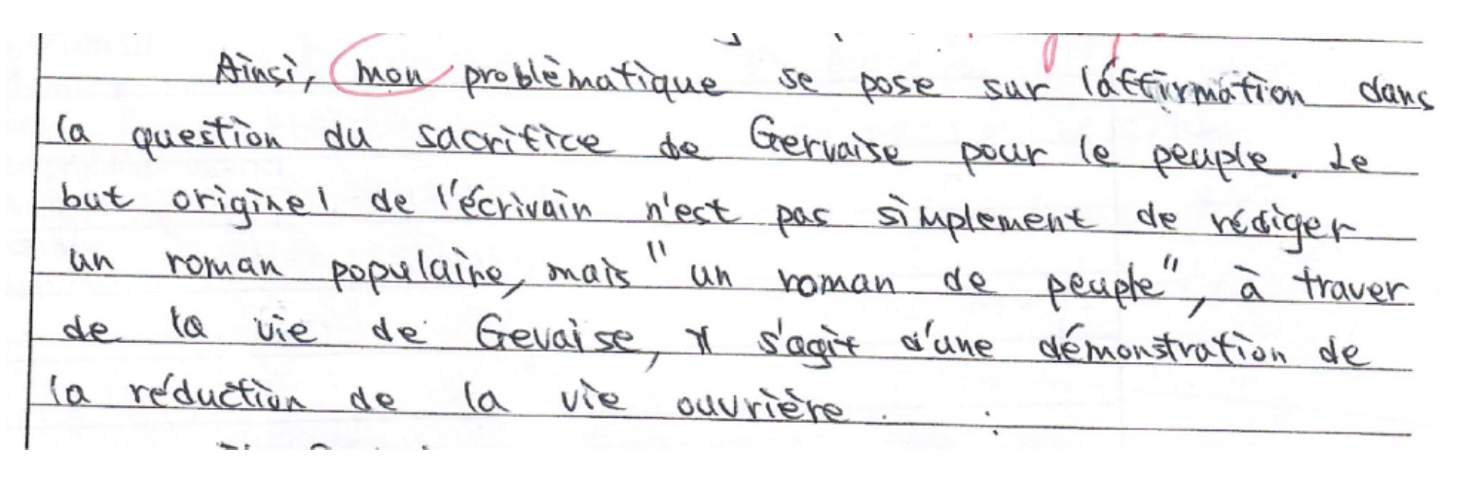 Ainsi, mon problèmatique se pose sur l'affirmation dans
la question du sacrifice de Gervaise pour le peuple. Le
but originel de l'écrivain n'est pas simplement de rédiger
un roman populaire, mais "un roman de peuple", à traver
de la vie de Gevaise, il s'agit d'une démonstration de
la réduction de la vie ouvrière.